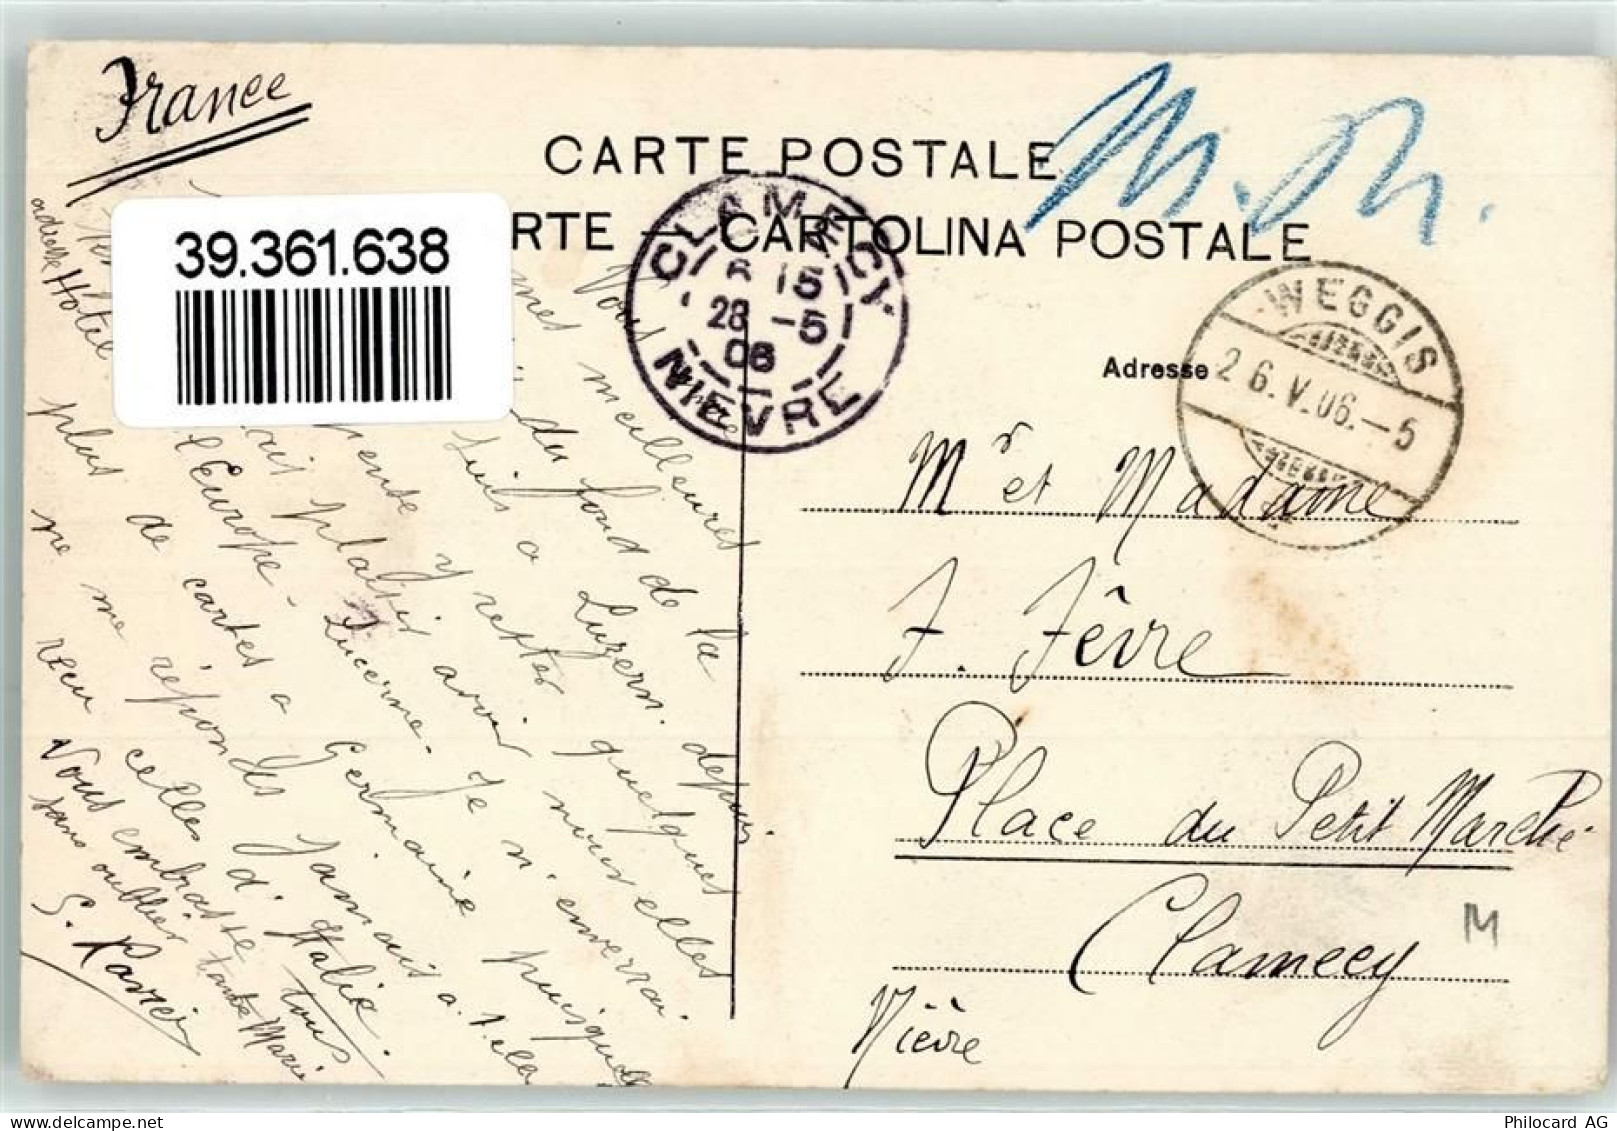 France
CARTE POSTALE
RTE – CARTOLINA POSTALE
39.361.638
CLAMECY
6 15
28 -5
06
NIEVRE
WEGGIS
26.V.06.-5
Adresse
Mr et Madame
J. Fèvre
Place du Petit Marché
Clamecy
Nièvre
M
Vous
mes meilleures
du fond de la
Suis a Luzern. depuis
y rester quelques
plaisir avoir nouvelles
adresse Hôtel
l'Europe - Lucerne. Je n'enverrai
plus de cartes a Germaine puisqu'elle
ne me réponds Jamais a. t-elle
reçu celles d'Italie.
Vous embrasse tous
sans oublier tante Marie
Philocard AG